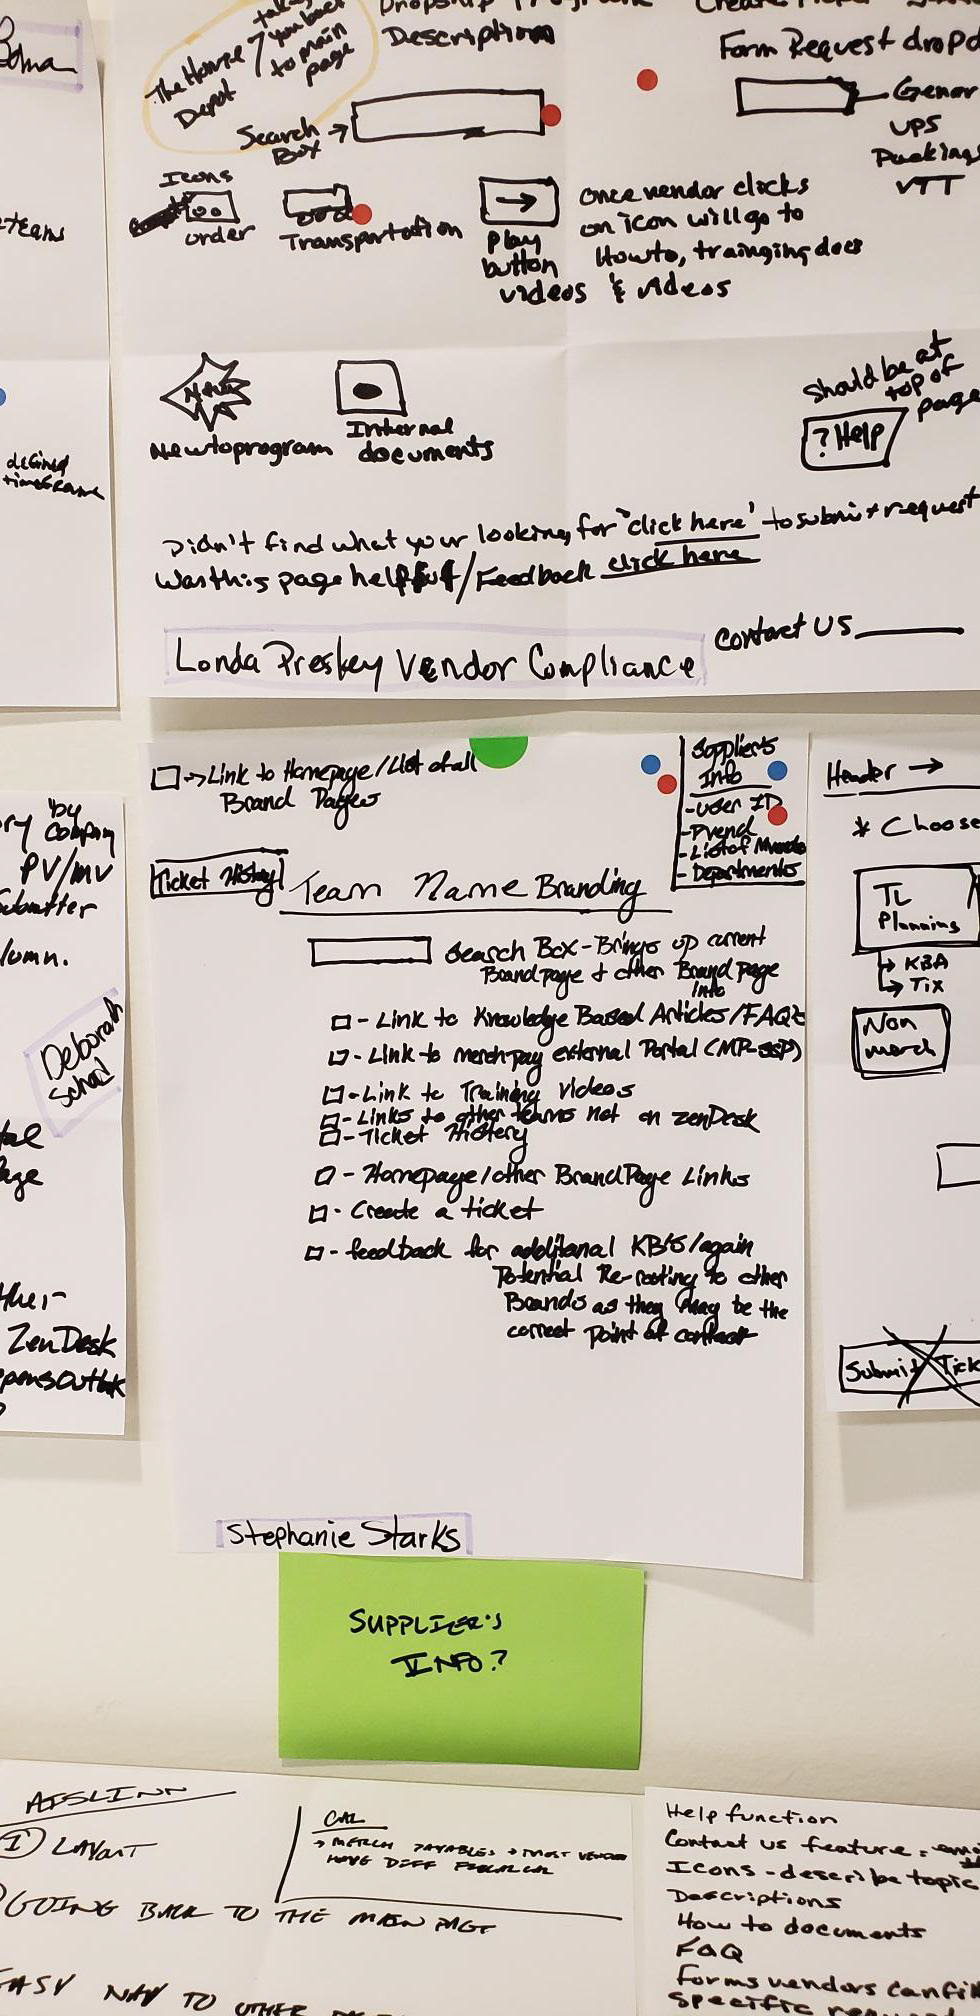 The Home Depot
takes you back to main page
Description
Form Request dropd
Search Box →
Gener
UPS
VTT
Icons
order
Transportation
→
Play button videos
once vendor clicks
on icon will go to
Howto, trainging docs
& videos
New
Newtoprogram
Internal
documents
Should be at
top of
page
? Help
Didn't find what your looking for "click here" to submit request
Was this page helpful/Feedback click here
Contact US
Londa Preskey Vendor Compliance
teams
defined
timeframe
→ Link to Homepage/List of all
Brand Pages
Suppliers
Info
- User ID
- Pvend
- List of Mvends
- Departments
Ticket History
Team Name Branding
Search Box - Brings up current
Brand page & other Brand page
info
- Link to Knowledge Based Articles/FAQs
- Link to merch pay external Portal (MP-SSP)
- Link to Training Videos
- Links to other teams not on zenDesk
- Ticket History
- Homepage/other Brand Page Links
- Create a ticket
- feedback for additional KB's/again
Potential Re-routing to other
Brands as they may be the
correct point of contact
Stephanie Starks
by
Company
PV/MV
Submitter
lumn.
Deborah
School
ZenDesk
Header →
* Choose
TL
Planning
→ KBA
→ Tix
Non
merch
Submit Tick
SUPPLIER'S
INFO?
AISLINN
1 LAYOUT
GOING BACK TO THE MAIN PAGE
EASY NAV TO OTHER
CAL
→ MERCH PAYABLES → MOST VENDOR
HAVE DIFF
Help function
Contact us feature
Icons - describe topic
Descriptions
How to documents
FAQ
Forms vendors can fil
specific